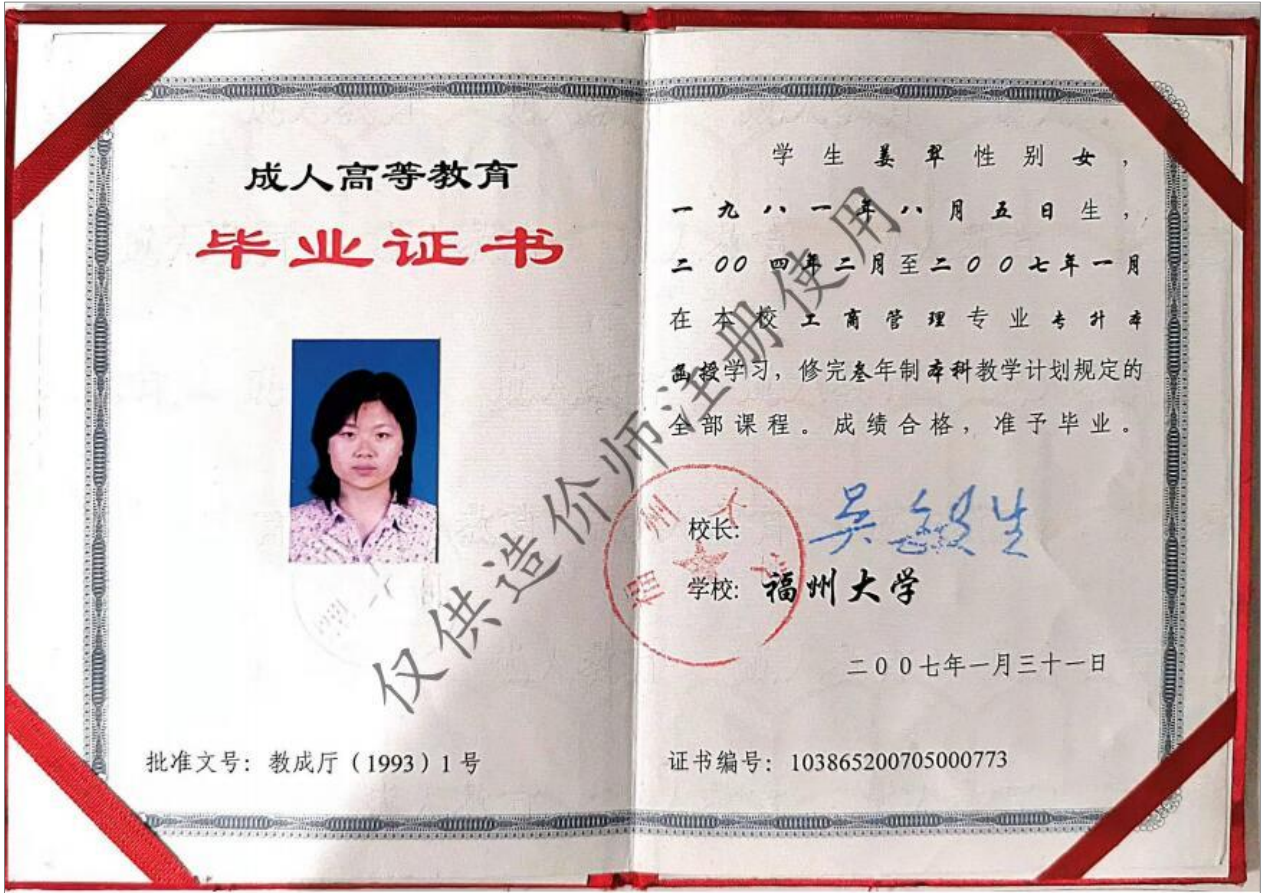 成人高等教育
毕业证书
批准文号：教成厅（1993）1号
学生姜翠性别女，
一九八一年八月五日生，
二00四年二月至二00七年一月
在本校工商管理专业专升本
函授学习，修完叁年制本科教学计划规定的
全部课程。成绩合格，准予毕业。
校长：吴敏生
学校：福州大学
二00七年一月三十一日
证书编号：103865200705000773
福州大学
仅供造价师注册使用